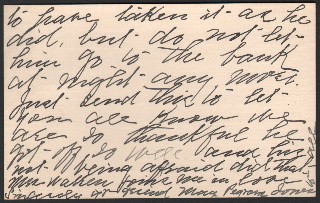 to have taken it as he
did, but do not let
him go to the bank
at night any more.
Just send this to let
you all know we
are so thankful he
got off so well and
not being afraid did that
Mrs
Sincerely yr friend